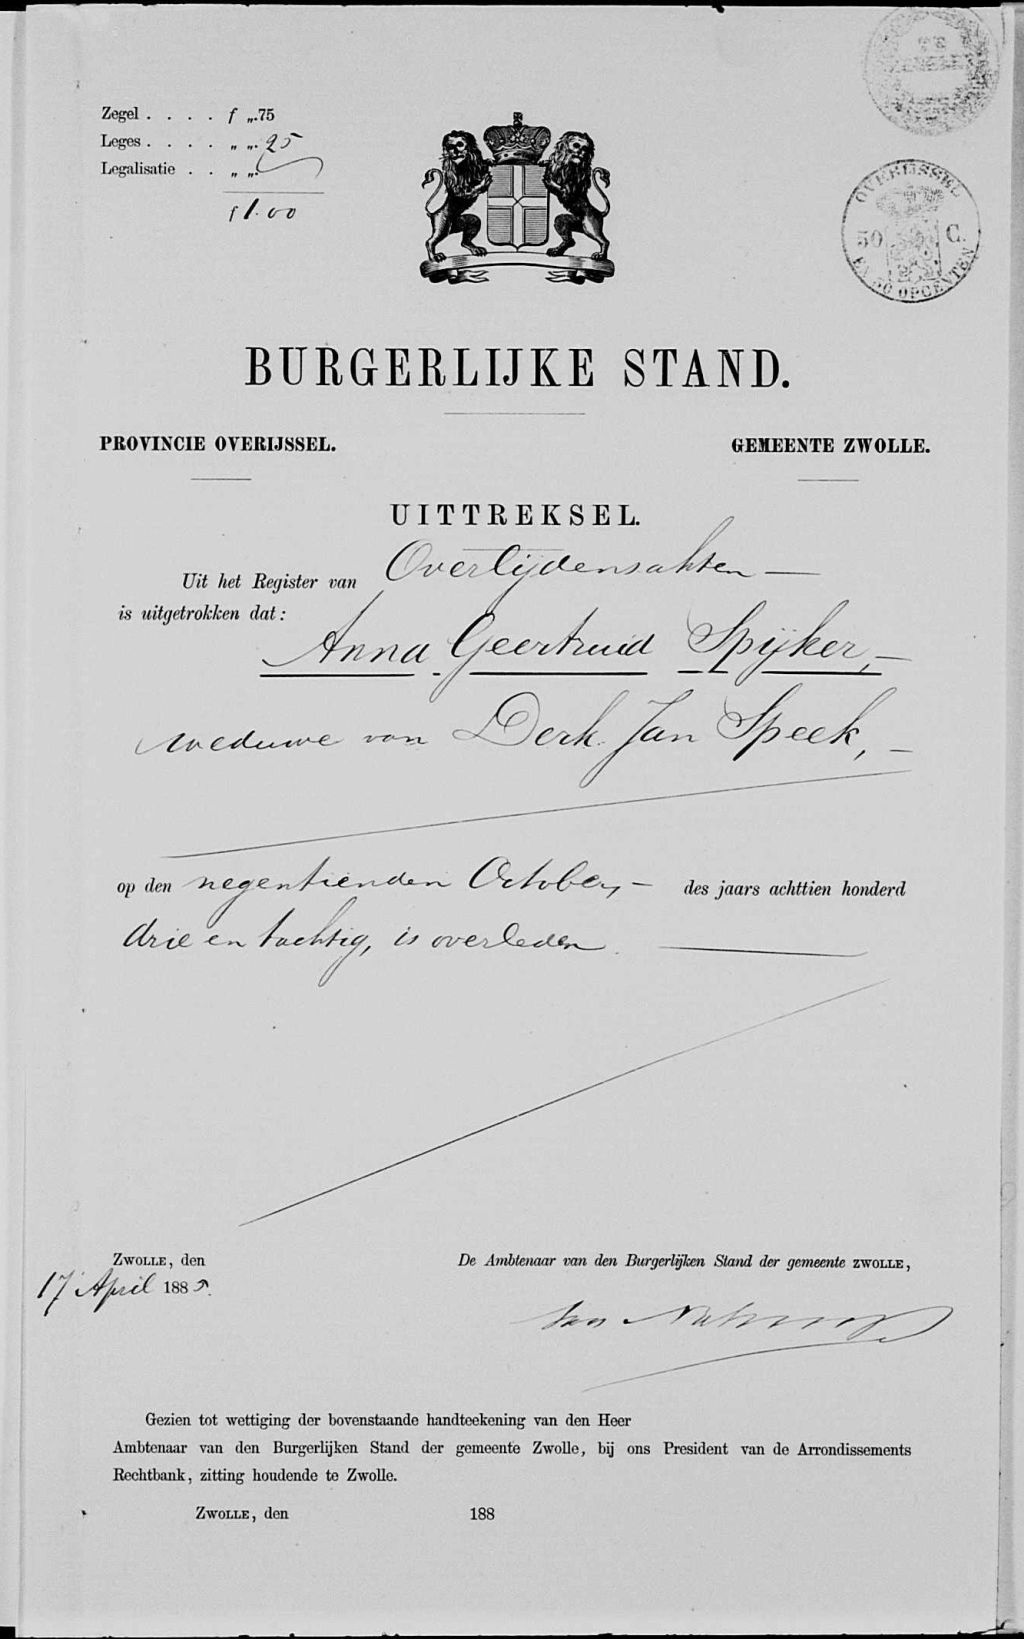 Zegel . . . . f „.75
Leges . . . . „ „. 25
Legalisatie . . „ „.
f 1.00
OVERIJSSEL
50 C.
EN 50 OPCENTEN
BURGERLIJKE STAND.
PROVINCIE OVERIJSSEL.
GEMEENTE ZWOLLE.
UITTREKSEL.
Uit het Register van Overlijdensakten —
is uitgetrokken dat:
Anna Geertruid Spijker, —
weduwe van Derk Jan Speek, —
op den negentienden October, — des jaars achttien honderd
drie en tachtig, is overleden.
ZWOLLE, den
17 April 1885.
De Ambtenaar van den Burgerlijken Stand der gemeente ZWOLLE,
Gezien tot wettiging der bovenstaande handteekening van den Heer
Ambtenaar van den Burgerlijken Stand der gemeente Zwolle, bij ons President van de Arrondissements
Rechtbank, zitting houdende te Zwolle.
ZWOLLE, den 188